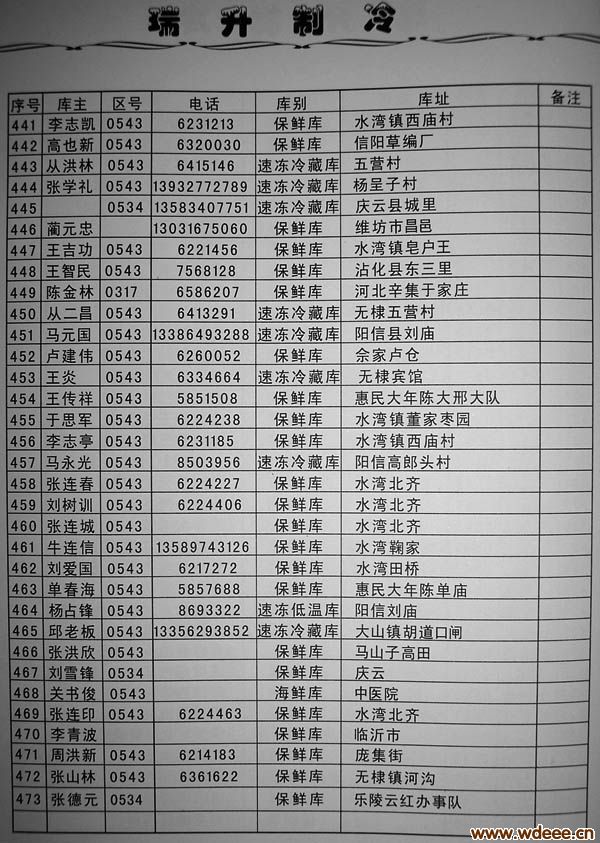 瑞升制冷
序号 库主 区号 电话 库别 库址 备注
441 李志凯 0543 6231213 保鲜库 水湾镇西庙村
442 高也新 0543 6320030 保鲜库 信阳草编厂
443 从洪林 0543 6415146 速冻冷藏库 五营村
444 张学礼 0543 13932772789 速冻冷藏库 杨呈子村
445 0534 13583407751 速冻冷藏库 庆云县城里
446 蔺元忠 13031675060 保鲜库 维坊市昌邑
447 王吉功 0543 6221456 保鲜库 水湾镇皂户王
448 王智民 0543 7568128 保鲜库 沾化县东三里
449 陈金林 0317 6586207 保鲜库 河北辛集于家庄
450 从二昌 0543 6413291 速冻冷藏库 无棣五营村
451 马元国 0543 13386493288 速冻冷藏库 阳信县刘庙
452 卢建伟 0543 6260052 保鲜库 佘家卢仓
453 王炎 0543 6334664 速冻冷藏库 无棣宾馆
454 王传祥 0543 5851508 保鲜库 惠民大年陈大邢大队
455 于思军 0543 6224238 保鲜库 水湾镇董家枣园
456 李志亭 0543 6231185 保鲜库 水湾镇西庙村
457 马永光 0543 8503956 速冻冷藏库 阳信高郎头村
458 张连春 0543 6224227 保鲜库 水湾北齐
459 刘树训 0543 6224406 保鲜库 水湾北齐
460 张连城 0543 保鲜库 水湾北齐
461 牛连信 0543 13589743126 保鲜库 水湾鞠家
462 刘爱国 0543 6217272 保鲜库 水湾田桥
463 单春海 0543 5857688 保鲜库 惠民大年陈单庙
464 杨占锋 0543 8693322 速冻低温库 阳信刘庙
465 邱老板 0543 13356293852 速冻冷藏库 大山镇胡道口闸
466 张洪欣 0543 保鲜库 马山子高田
467 刘雪锋 0534 保鲜库 庆云
468 关书俊 0543 海鲜库 中医院
469 张连印 0543 6224463 保鲜库 水湾北齐
470 李青波 保鲜库 临沂市
471 周洪新 0543 6214183 保鲜库 庞集街
472 张山林 0543 6361622 保鲜库 无棣镇河沟
473 张德元 0534 保鲜库 乐陵云红办事队
www.wdeee.cn